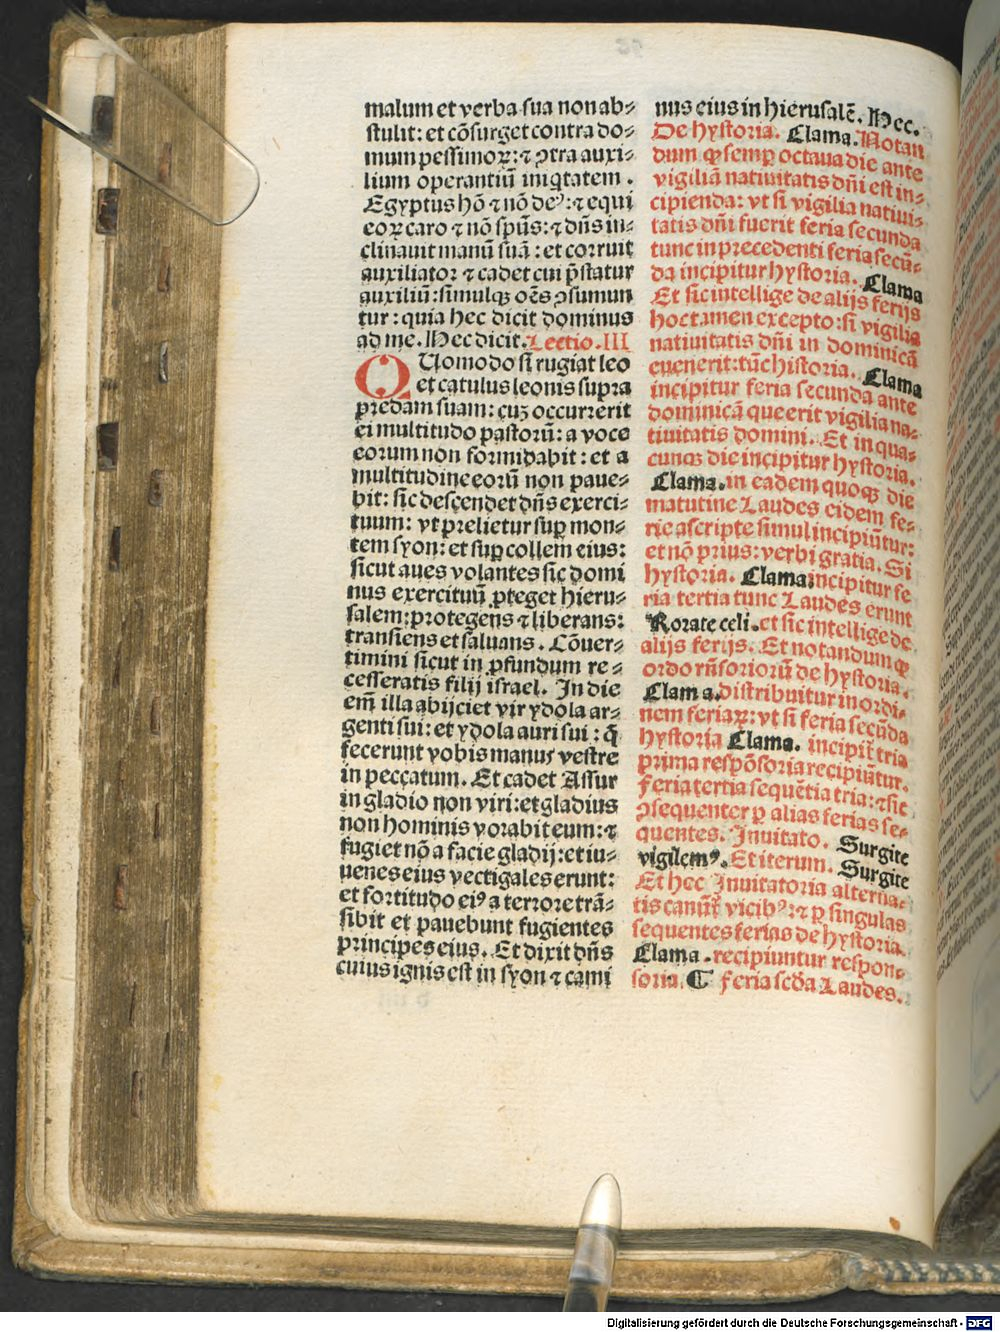 malum et verba sua non ab⸗
stulit: et cōsurget contra do⸗
mum pessimoꝝ: ⁊ ꝯtra auxi⸗
lium operantiū iniqtatem.
Egyptus hō ⁊ nō deꝰ: ⁊ equi
eoꝝ caro ⁊ nō spūs: ⁊ dñs in⸗
clinauit manū suā: et corruit
auxiliator ⁊ cadet cui p̄statur
auxiliū: simulqꝫ oēs ꝯsumun
tur: quia hec dicit dominus
ad me. Hec dicit. Lectio. III
QUomodo si rugiat leo
et catulus leonis supra
predam suam: cuꝫ occurrerit
ei multitudo pastorū: a voce
eorum non formidabit: et a
multitudine eorū non paue⸗
bit: sic descendet dñs exerci⸗
tuum: vt prelietur suꝑ mon⸗
tem syon: et suꝑ collem eius:
sicut aues volantes sic domi
nus exercituū ꝓteget hieru⸗
salem: protegens ⁊ liberans:
transiens et saluans. Cōuer⸗
timini sicut in ꝓfundum re⸗
cesseratis filij israel. In die
em̄ illa abijciet vir ydola ar⸗
genti sui: et ydola auri sui: q̄
fecerunt vobis manus vestre
in peccatum. Et cadet Assur
in gladio non viri: et gladius
non hominis vorabit eum: ⁊
fugiet nō a facie gladij: et iu⸗
uenes eius vectigales erunt:
et fortitudo eiꝰ a terrore trā⸗
sibit et pauebunt fugientes
principes eius. Et dixit dñs
cuius ignis est in syon ⁊ cami
nus eius in hierusalē. Hec.
De hystoria. Clama. Notan
dum ꝙ semꝑ octaua die ante
vigiliā natiuitatis dñi est in⸗
cipienda: vt si vigilia natiui⸗
tatis dñi fuerit feria secunda
tunc in precedenti feria secū⸗
da incipitur hystoria. Clama
Et sic intellige de alijs ferijs
hoc tamen excepto: si vigilia
natiuitatis dñi in dominicā
euenerit: tūc historia. Clama
incipitur feria secunda ante
dominicā que erit vigilia na⸗
tiuitatis domini. Et in qua⸗
cunqꝫ die incipitur hystoria.
Clama. in eadem quoqꝫ die
matutine Laudes eidem fe⸗
rie ascripte simul incipiūtur:
et nō prius: verbi gratia. Si
hystoria. Clama incipitur fe
ria tertia tunc Laudes erunt
Rorate celi. et sic intellige de
alijs ferijs. Et notandum ꝙ
ordo rñsoriorū de hystoria.
Clama. distribuitur in ordi⸗
nem feriaꝝ: vt si feria secūda
hystoria Clama. incipit̄ tria
prima respōsoria recipiūtur.
Feria tertia sequētia tria: ⁊ sic
ꝯsequenter ꝑ alias ferias se⸗
quentes. Inuitato. Surgite
vigilemꝰ. Et iterum. Surgite
Et hec Inuitatoria alterna⸗
tis canūt̄ vicibꝰ: ⁊ ꝑ singulas
sequentes ferias de hystoria
Clama. recipiuntur respon⸗
soria. ¶ Feria scd̄a Laudes.
Digitalisierung gefördert durch die Deutsche Forschungsgemeinschaft - DFG